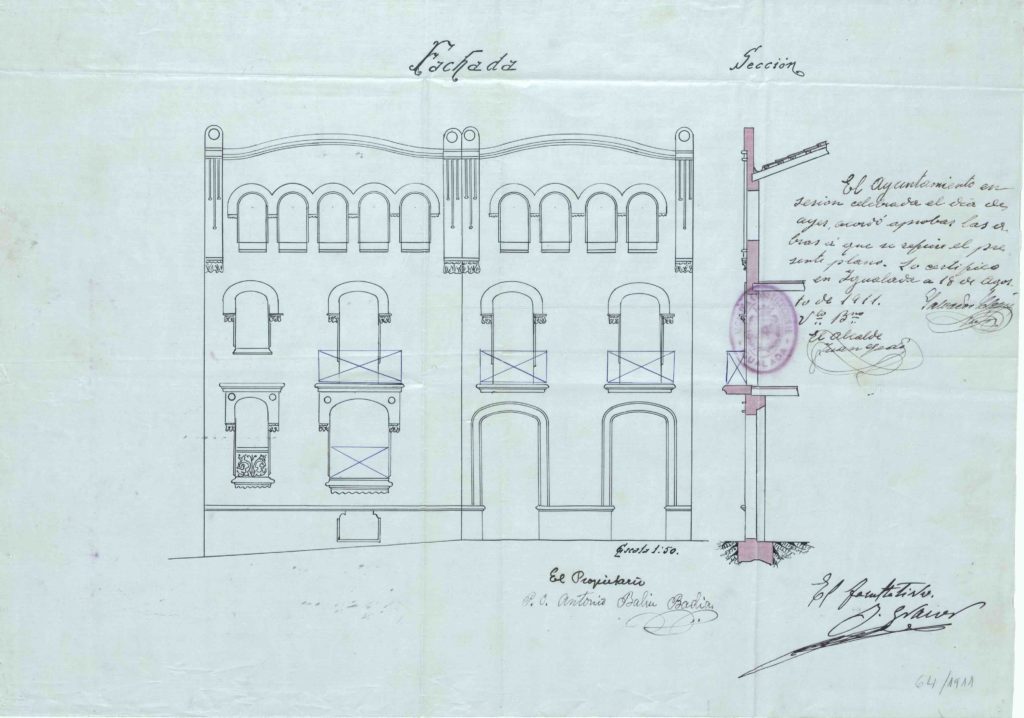 Fachada
Sección
El Ayuntamiento en
sesion celebrada el dia de
ayer, acordó aprobar las o-
bras á que se refiere el pre-
sente plano. Lo certifico
en Igualada a 18 de Agos-
to de 1911.
Vto. Bno
El Alcalde
IGUALADA
Escala 1:50.
El Propietario
P. O. Antonio Baliu Badia
El facultativo.
64/1911